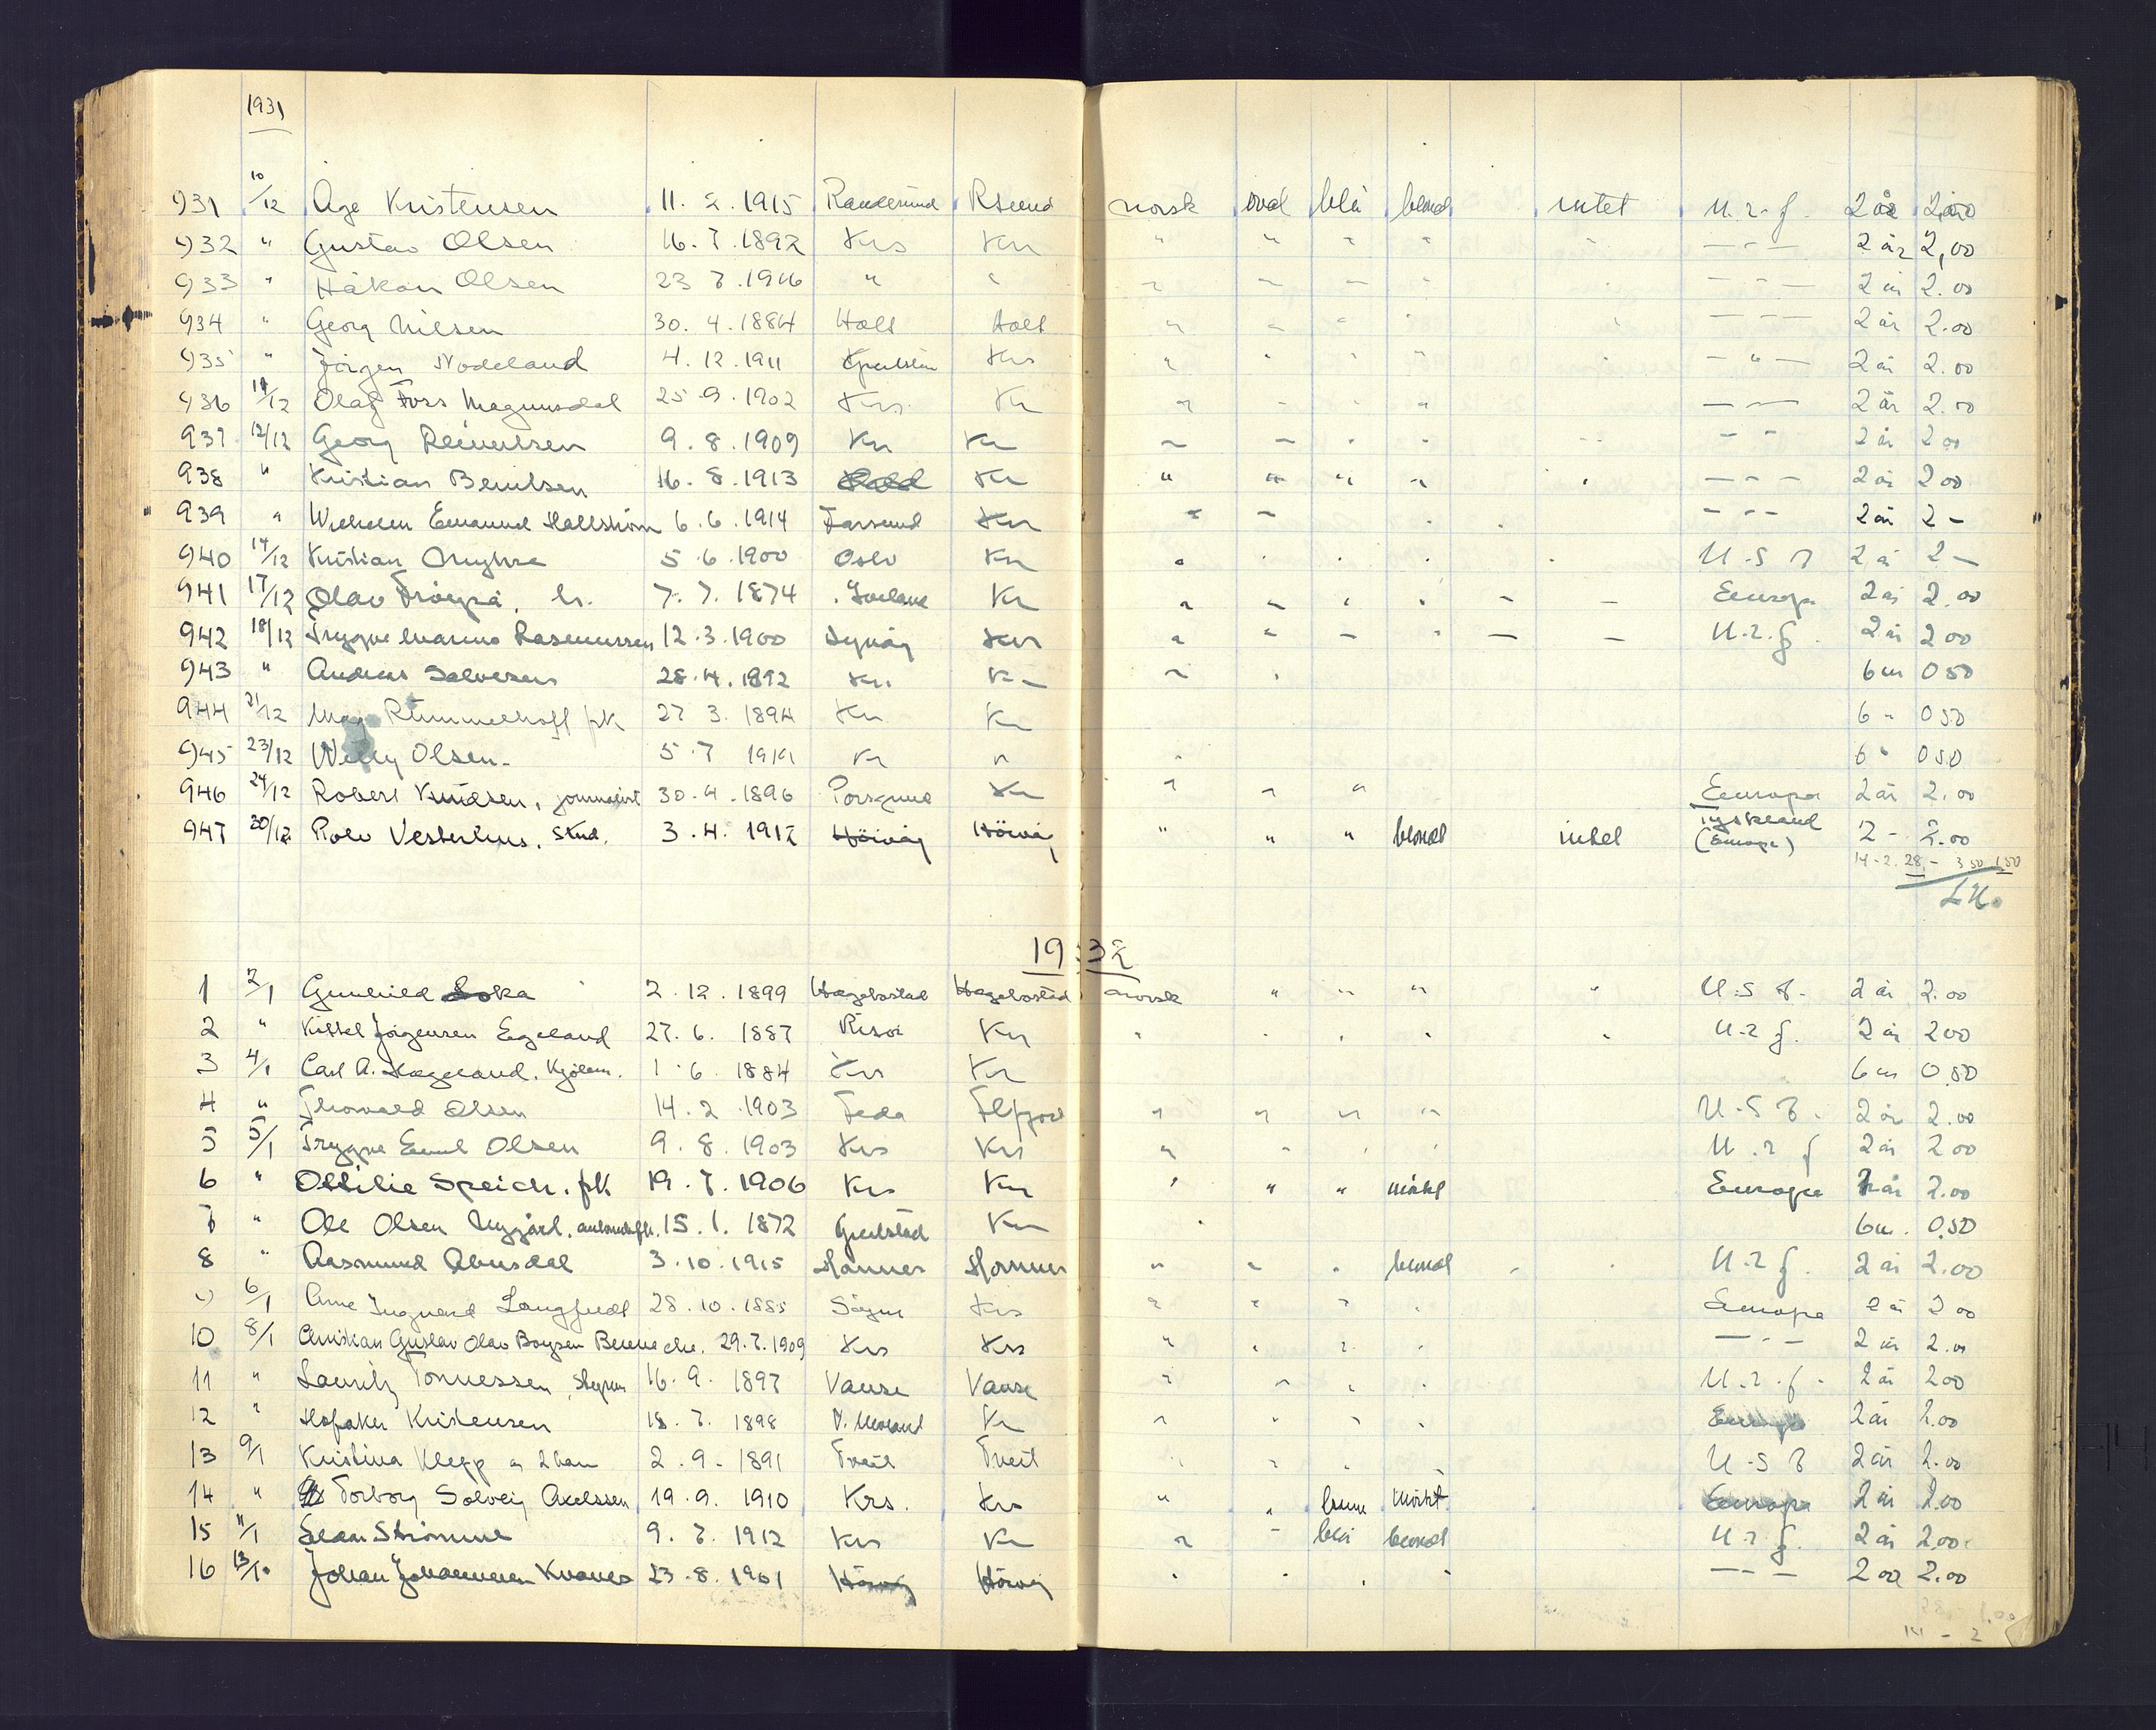 1931
931 10/12 Åge Kristensen 11. 2. 1915 Randesund Rsund norsk oval blå blond intet U.r.f. 2 år 2,00
932 " Gustav Olsen 16. 7. 1892 Krs Kr " " " " " — " — 2 år 2,00
933 " Håkon Olsen 23 7. 1906 " " " " " " — " — 2 år 2.00
934 " Georg Nilsen 30. 4. 1884 Holt Holt " " " " — " — 2 år 2.00
935 " Jörgen Nodeland 4. 12. 1911 Krs " " " " — " — 2 år 2.00
936 11/12 Olaf Foss Magnusdal 25. 9. 1902 Krs. Kr " " " " — " — 2 år 2.00
937 12/12 Georg Reinertsen 9. 8. 1909 Kr Kr " " " " — " — 2 år 2 00
938 " Kristian Berntsen 16. 8. 1913 Kr " " " " — " — 2 år 2 00
939 " Wilhelm Emanuel Hallström 6. 6. 1914 Farsund Kr " " — " — 2 år 2 –
940 14/12 Kristian Myhre 5. 6. 1900 Oslo Kr " U.S.A 2 å 2 –
941 17/12 Olav 7. 7. 1874 Kr " " " " Europa 2 år 2.00
942 18/12 Trygve Marino Rasmussen 12. 3. 1900 Lyngör Krs " " " " U.r.f. 2 år 2 00
943 " Andreas Salvesen 28. 4. 1892 Kr. Kr " 6 m 0 50
944 21/12 Rummelhoff frk 27 3. 1894 Kr Kr 6 " 0 50
945 23/12 Willy Olsen 5. 7 1919 Kr " " 6 " 0 50
946 24/12 Robert Knudsen, journalist 30. 4. 1896 Porsgrund Kr " " " Europa 2 år 2.00
947 30/12 Rolv Vesterhus. Stud. 3. 4. 1912 Höivåg Höivåg " " " blond intet Tyskland (Europa) 2 – 2.00
14 – 2. 28 – 3 50 1,50
1932
1 2/1 Gunhild 2. 12. 1899 Hægebostad Hægebostad norsk " " " " U.S.A. 2 år 2.00
2 " Kittel Jörgensen Egeland 27. 6. 1887 Risör Kr " " " " " U.r.f. 2 år 2 00
3 4/1 Carl A. Hægeland. Kjölem. 1. 6. 1884 Krs Kr 6 m 0.50
4 " Thorvald Olsen 14. 2. 1903 Feda " " " " U.S.A. 2 år 2.00
5 5/1 Trygve Emil Olsen 9. 8. 1903 Krs Krs " " " " U.r.f 2 år 2 00
6 " Ottilie Speich. frk 19. 7. 1906 Krs Kr " " " mörkt Europa 2 år 2.00
7 " Ole Olsen Nygård. 15. 1. 1872 Kr " 6 m. 0.50
8 " Aasmund Abusdal 3. 10. 1915 Hornnes Hornnes " " " blond U.r.f. 2 år 2.00
9 6/1 Arne Ingvard Langfeldt 28. 10. 1885 Sögne Krs " " " " Europa 2 år 2 00
10 8/1 Christian Gustav Olav Boysen Benneche. 29. 7. 1909 Krs Krs " " " " — " — 2 år 2.00
11 " Lauritz Tönnessen, styrm 16. 9. 1897 Vanse Vanse " " " " U.r.f. 2 år 2 00
12 " Kristensen 18. 7. 1898 Kr " " " " Europa 2 år 2.00
13 9/1 Kristina Klepp 2. 9. 1891 Tveit Tveit " " " " U.S.A 2 år 2.00
14 " Torborg Solveig Axelssen 19. 9. 1910 Krs. Krs " " brune mörkt Europa 2 år 2.00
15 11/1 Strömme 9. 7. 1912 Krs Kr " " blå blond U.r.f. 2 år 2.00
16 13/1 Johan Johannesen Kvanes 23. 8. 1901 Höivåg Höivåg " " " " — " — 2 år 2.00